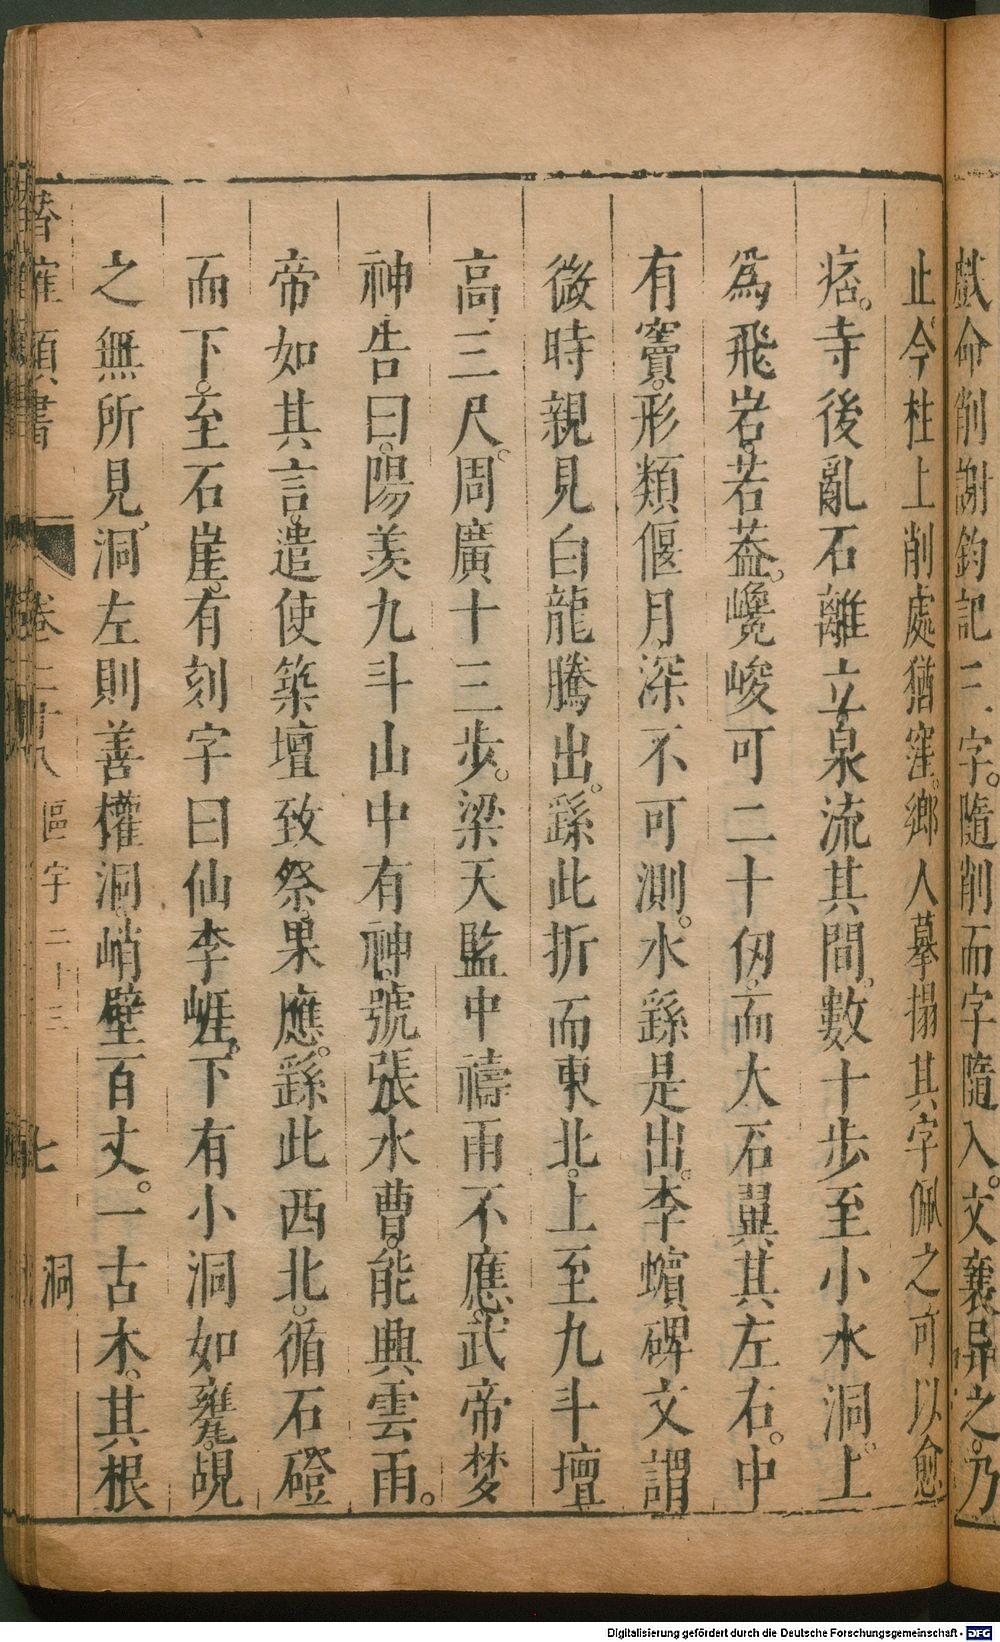 戲命削謝鈞記三字隨削而字隨入文襄异之乃
止今柱上削處猶窪鄉人摹搨其字佩之可以愈
痞。寺後亂石離立泉流其間。數十步至小水洞。上
為飛岩若葢。巉峻可二十仭而大石翼其左右。中
有竇。形類偃月深不可測。水繇是出。李蠙碑文謂
微時親見白龍騰出。繇此折而東北。上至九斗壇
高三尺。周廣十三步。梁天監中禱雨不應。武帝梦
神告曰。陽羨九斗山中有神號張水曹。能興雲雨。
帝如其言。遣使築壇致祭。果應。繇此西北。循石磴
而下。至石崖。有刻字曰仙李崕。下有小洞如甕。覘
之無所見。洞左則善權洞。峭壁百丈。一古木。其根
卷二十八 區宇二十三 七 洞
Digitalisierung gefördert durch die Deutsche Forschungsgemeinschaft - DFG